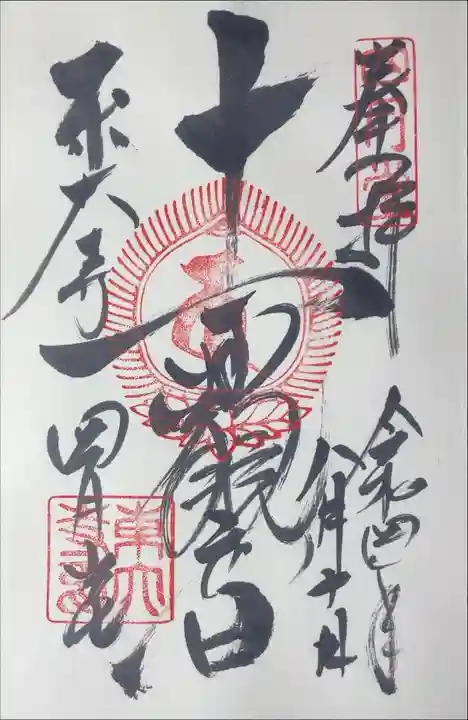 奉拝
令和四年
八月十九日
十一面観音
東大寺
四月堂